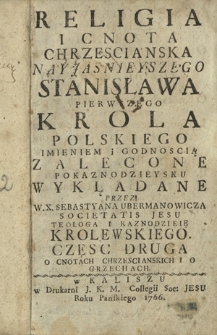 RELIGIA
I CNOTA
CHRZESCIANSKA
NAYJASNIEYSZEGO
STANISŁAWA
PIERWSZEGO
KROLA
POLSKIEGO
IMIENIEM I GODNOSCIĄ
ZALECONE
POKAZNODZIEYSKU
WYKŁADANE
PRZEZ
W. X. SEBASTYANA UBERMANOWICZA
SOCIETATIS JESU
TEOLOGA I KAZNODZIEIĘ
KROLEWSKIEGO.
CZĘSC DRUGA
O CNOTACH CHRZESCIANSKICH I O
GRZECHACH.
W KALISZU
w Drukarni J. K. M. Collegii Soct JESU
Roku Pańskiego 1766.
2